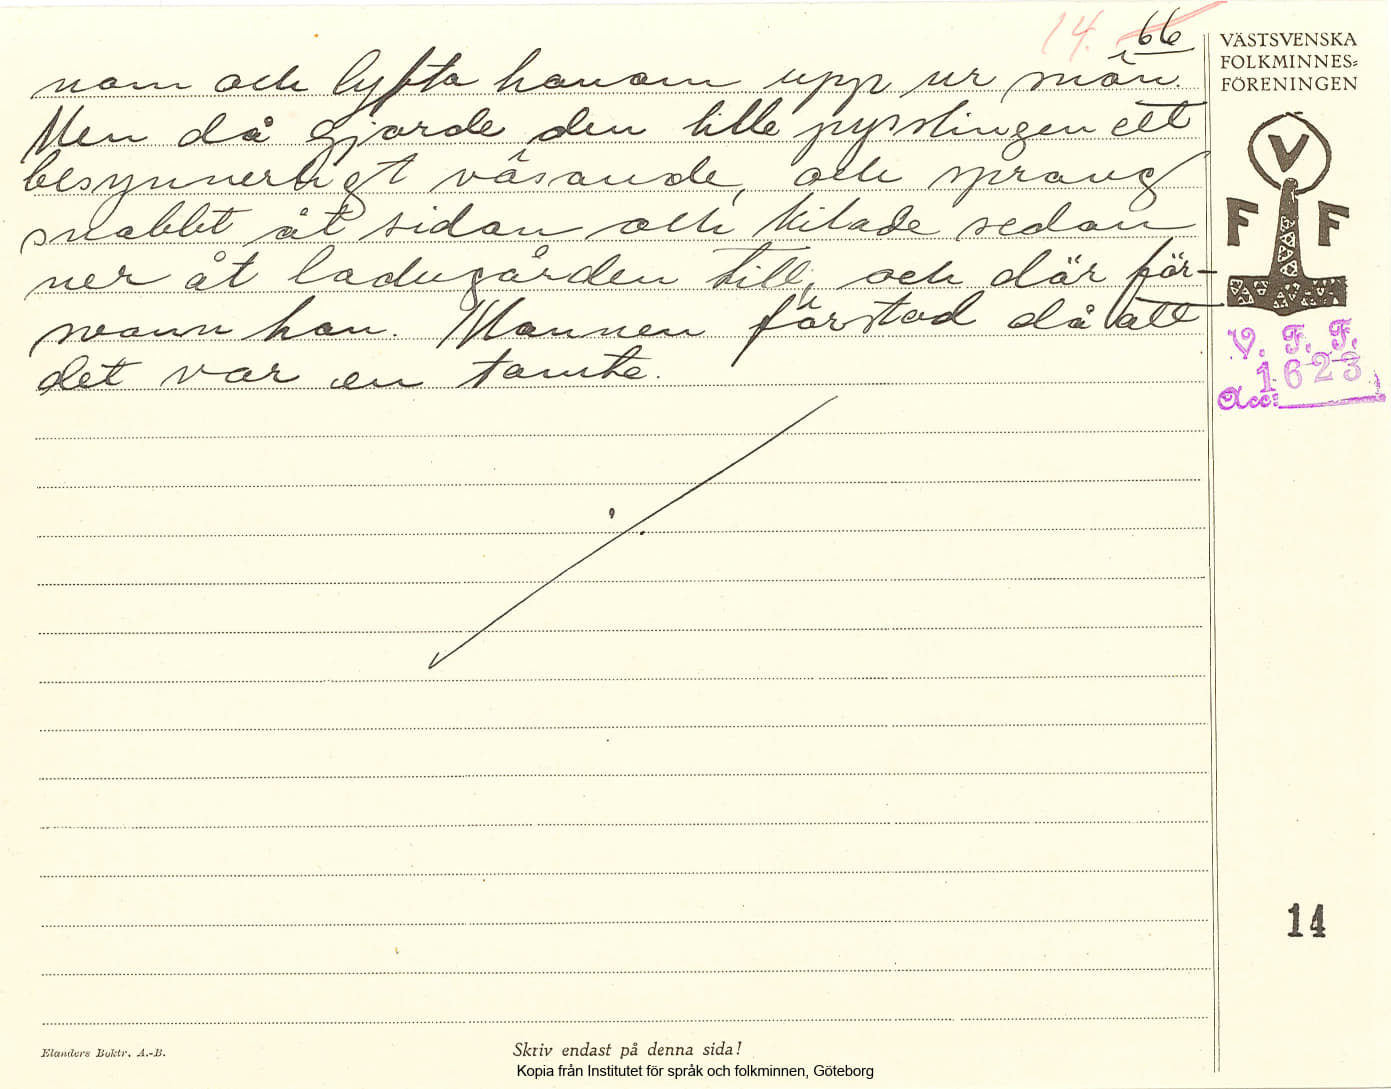 14. 66
nom och lyfta honom upp ur mön.
Men då gjorde den lille pysslingen ett
besynnerligt väsande, och sprang
snabbt åt sidan och kilade sedan
ner åt ladugården till, och där för-
svann han. Mannen förstod då att
det var en tomte.
VÄSTSVENSKA
FOLKMINNES=
FÖRENINGEN
V
F F
V. F. F.
1623
Acc:
14
Elanders Boktr. A.-B.
Skriv endast på denna sida!
Kopia från Institutet för språk och folkminnen, Göteborg